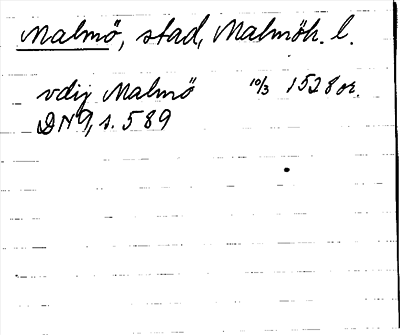 Malmö, stad, Malmöh. l.
vdig Malmö 10/3 1528 or.
DN 9, s. 589